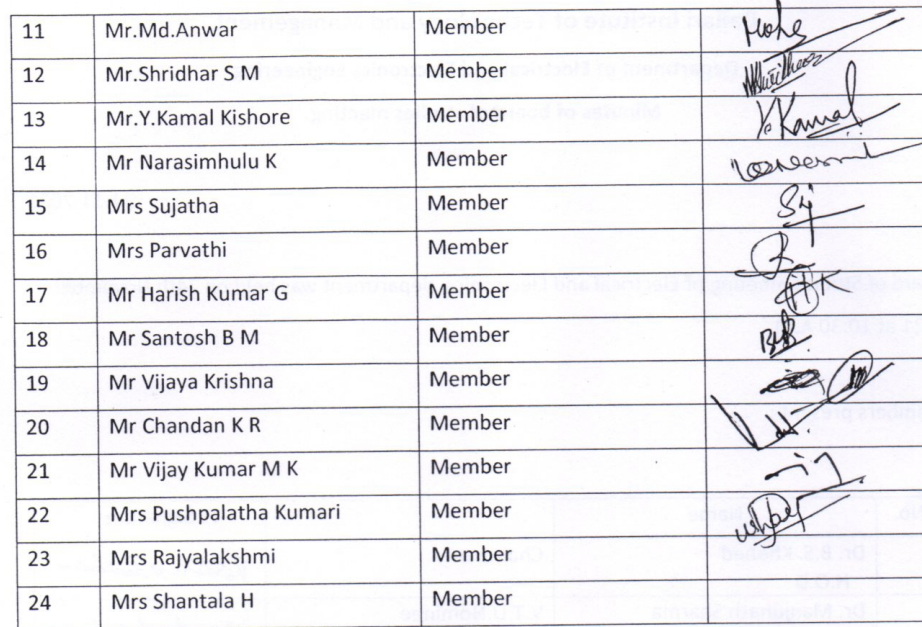 11 Mr.Md.Anwar Member
12 Mr.Shridhar S M Member
13 Mr.Y.Kamal Kishore Member Y. Kamal
14 Mr Narasimhulu K Member
15 Mrs Sujatha Member
16 Mrs Parvathi Member
17 Mr Harish Kumar G Member
18 Mr Santosh B M Member
19 Mr Vijaya Krishna Member
20 Mr Chandan K R Member
21 Mr Vijay Kumar M K Member
22 Mrs Pushpalatha Kumari Member
23 Mrs Rajyalakshmi Member
24 Mrs Shantala H Member